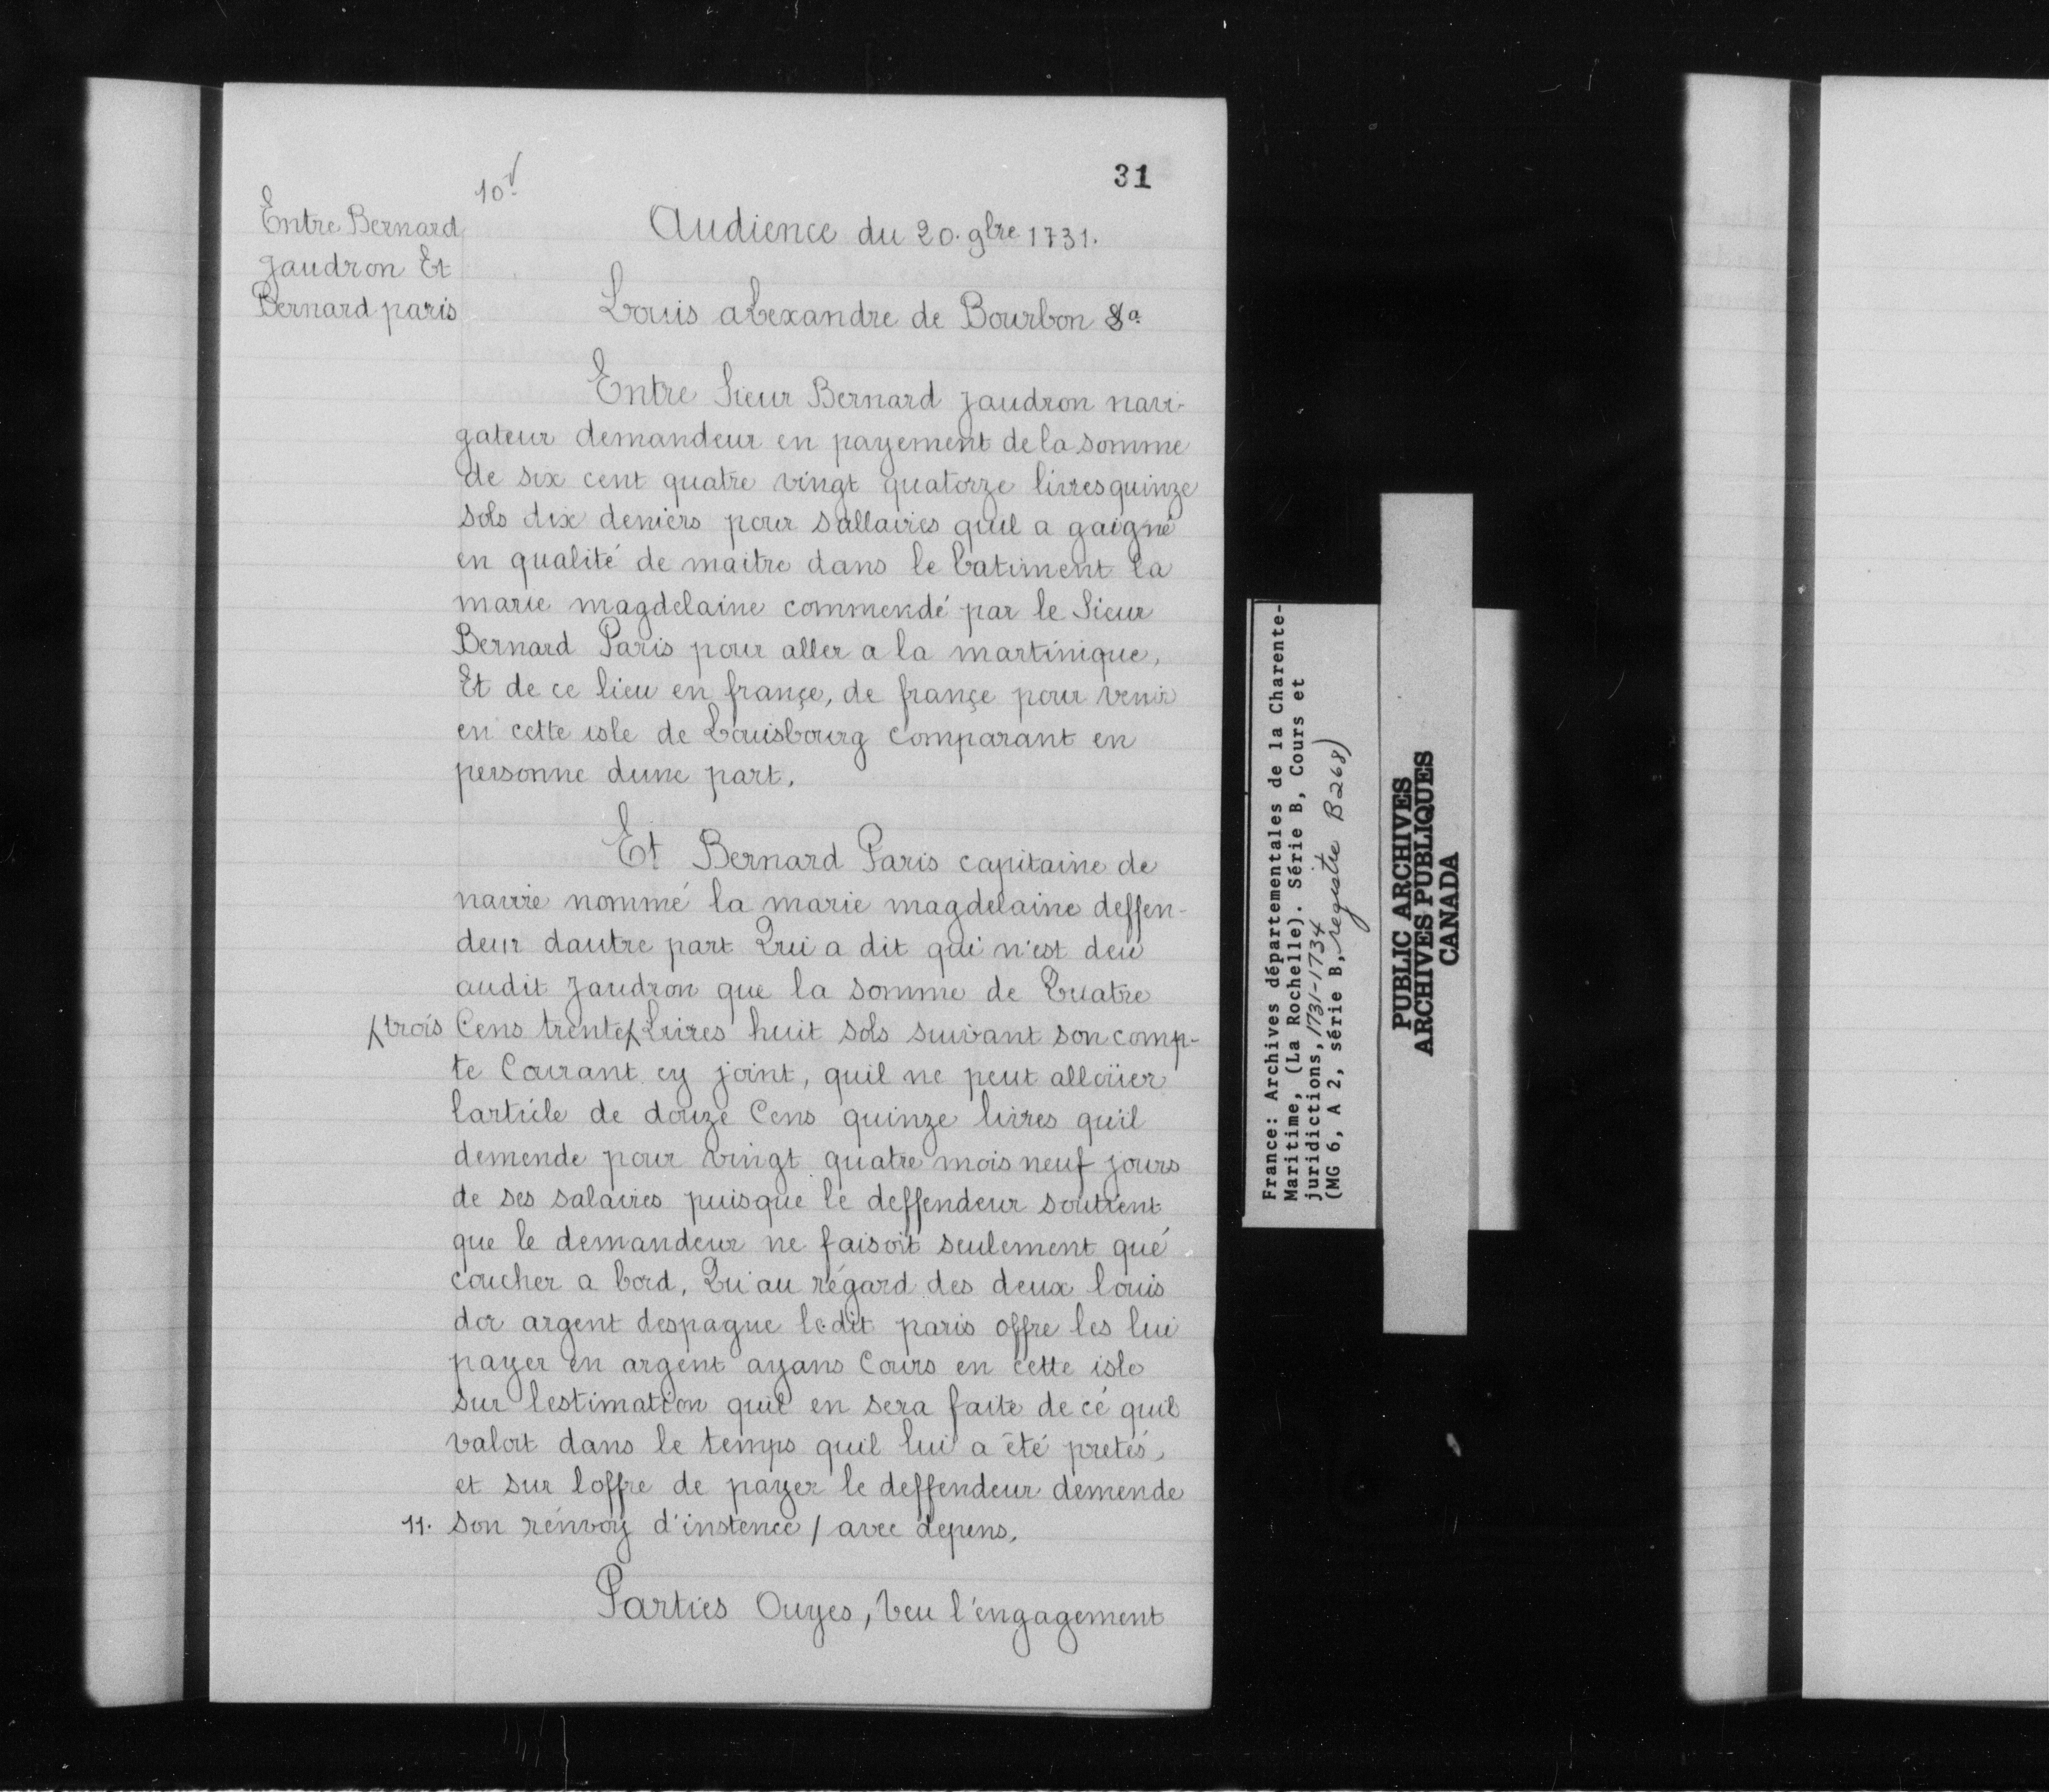 31
10v
Entre Bernard
Jaudron Et
Bernard paris
Audience du 20. 9bre 1731.
Louis alexandre de Bourbon &a
Entre Sieur Bernard Jaudron navi-
gateur demandeur en payement de la somme
de six cent quatre vingt quatorze livres quinze
sols dix deniers pour sallaires quil a gaigné
en qualité de maitre dans le batiment la
marie magdelaine commendé par le Sieur
Bernard Paris pour aller a la martinique,
Et de ce lieu en françe, de françe pour venir
en cette isle de Louisbourg comparant en
personne dune part.
Et Bernard Paris capitaine de
navire nommé la marie magdelaine deffen-
deur dautre part Qui a dit qui n'est deu
audit Jaudron que la somme de Quatre
trois Cens trente Livres huit sols suivant son comp-
te Courant cy joint, quil ne peut alloüer
larticle de douze Cens quinze livres qu'il
demende pour vingt quatre mois neuf jours
de ses salaires puisque le deffendeur soutient
que le demandeur ne faisoit seulement que
coucher a bord, Qu'au régard des deux louis
dor argent despagne ledit paris offre les lui
payer en argent ayans Cours en cette isle
sur lestimation quil en sera faite de cé quil
valoit dans le temps quil lui a été pretés,
et sur loffre de payer le deffendeur demende
11. son rénvoy d'instence / avec depens.
Parties Ouyes, Veu l'engagement
France: Archives départementales de la Charente-
Maritime, (La Rochelle). Série B, Cours et
juridictions, 1731-1734
(MG 6, A 2, série B, registre B268)
PUBLIC ARCHIVES
ARCHIVES PUBLIQUES
CANADA